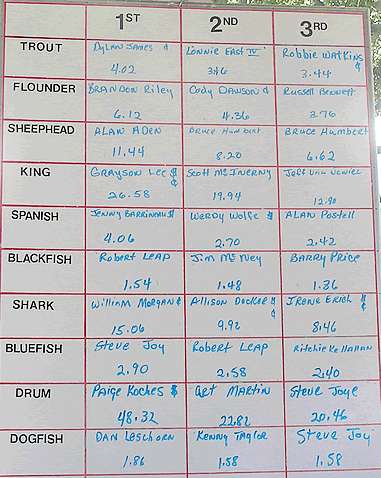 1ST 2ND 3RD
TROUT Dylan James ¢ Lonnie East IV Robbie Watkins ¢
4.02 3.46 3.44
FLOUNDER Brandon Riley Cody Dawson ¢ Russell Bennett
6.12 4.36 3.76
SHEEPHEAD Alan Aden Bruce Humbert Bruce Humbert
11.44 8.20 6.62
KING Grayson Lee $ ¢ Scott McInerny Jeff Van
26.58 19.94 12.80
SPANISH Jenny Barrineau $ Wendy Wolfe $ Alan Postell
4.06 2.70 2.42
BLACKFISH Robert Leap Jim McNey Barry Price
1.54 1.48 1.36
SHARK William Morgan ¢ Allison Docker $ ¢ Irene Erich $ ¢
15.06 9.92 8.46
BLUEFISH Steve Joy Robert Leap Ritchie Kellahan
2.90 2.58 2.40
DRUM Paige Koches $ Art Martin Steve Joye
48.32 22.82 20.46
DOGFISH Dan Leschorn Kenny Taylor Steve Joy
1.86 1.58 1.58